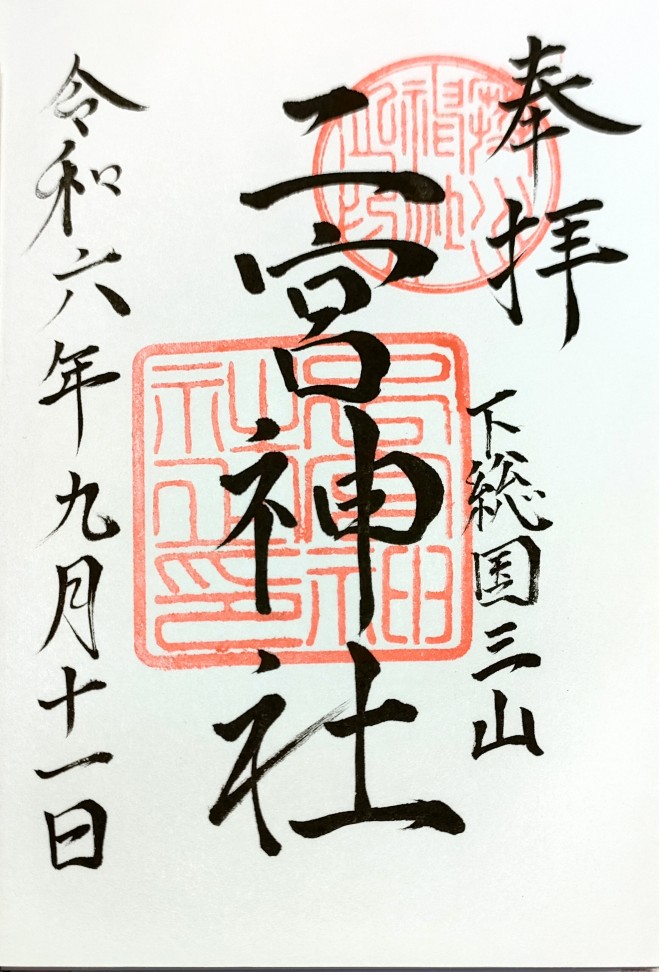 奉拝
下総国三山
二宮神社
令和六年九月十一日